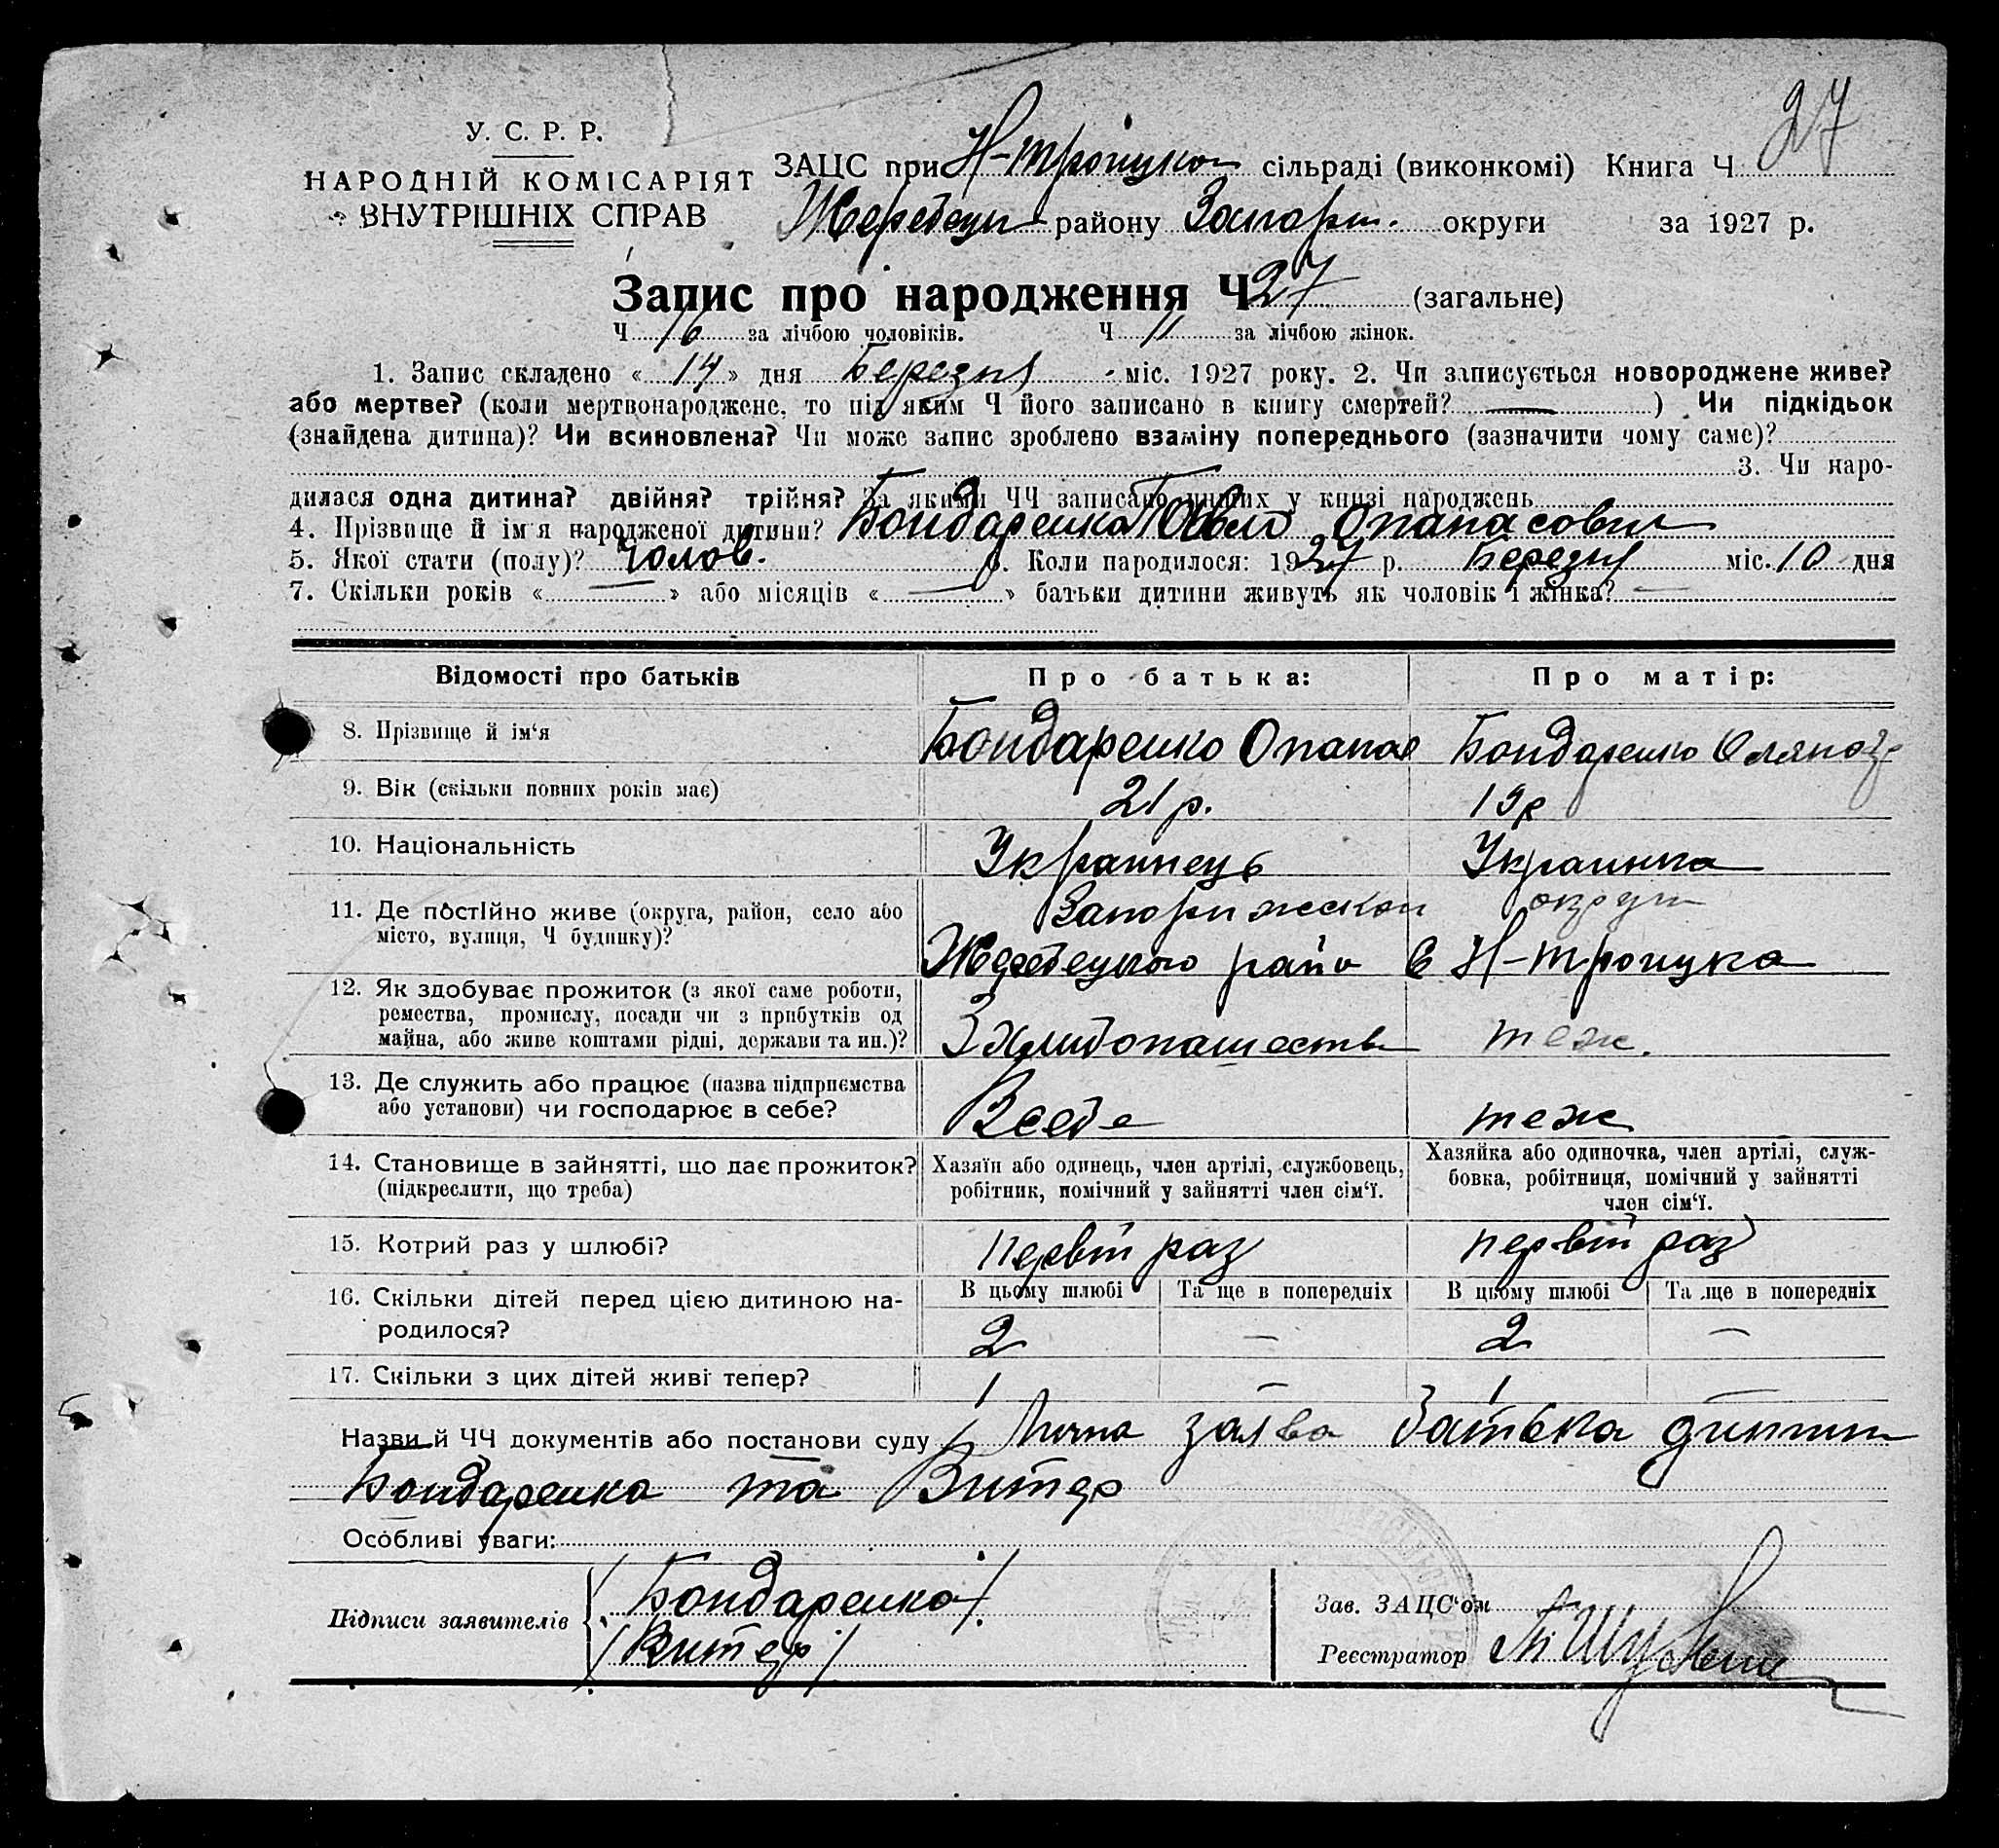 27
У. С. Р. Р.
НАРОДНІЙ КОМІСАРІЯТ
ВНУТРІШНІХ СПРАВ
ЗАЦС при Н-Троицкой сільраді (виконкомі) Книга Ч
району Запориж. округи за 1927 р.
Запис про народження Ч 27 (загальне)
Ч 16 за лічбою чоловіків. Ч 11 за лічбою жінок.
1. Запис складено « 14 » дня Березня міс. 1927 року. 2. Чи записується новороджене живе?
або мертве? (коли мертвонароджене, то під яким Ч його записано в книгу смертей? — ) Чи підкідьок
(знайдена дитина)? Чи всиновлена? Чи може запис зроблено взаміну попереднього (зазначити чому саме)?
3. Чи наро-
дилася одна дитина? двійня? трійня? За якими ЧЧ записано инших у книзі народжень
4. Прізвище й ім'я народженої дитини? Бондаренко Павло Опанасович
5. Якої стати (полу)? Чолов. 6. Коли народилося: 1927 р. Березня міс. 10 дня
7. Скільки років « — » або місяців « — » батьки дитини живуть як чоловік і жінка? —
Відомості про батьків Про батька: Про матір:
8. Прізвище й ім'я Бондаренко Опанас Бондаренко
9. Вік (скільки повних років має) 21 р. 19 р
10. Національність Украинець Украинка
11. Де постійно живе (округа, район, село або
місто, вулиця, Ч будинку)? округи
Жеребецького с Н-Троицка
12. Як здобуває прожиток (з якої саме роботи,
ремества, промислу, посади чи з прибутків од
майна, або живе коштами рідні, держави та ин.)? теж.
13. Де служить або працює (назва підприємства
або установи) чи господарює в себе? В себе теж
14. Становище в зайнятті, що дає прожиток?
(підкреслити, що треба)
Хазяїн або одинець, член артілі, службовець,
робітник, помічний у зайнятті член сім'ї.
Хазяйка або одиночка, член артілі, служ-
бовка, робітниця, помічний у зайнятті
член сім'ї.
15. Котрий раз у шлюбі? первий раз первий раз
В цьому шлюбі Та ще в попередніх В цьому шлюбі Та ще в попередніх
16. Скільки дітей перед цією дитиною на-
родилося? 2 — 2 —
17. Скільки з цих дітей живі тепер? 1 — 1
Назви й ЧЧ документів або постанови суду Лична заява батька дитини
Бондаренка та Витер
Особливі уваги:
Підписи заявителів / Бондаренко /
/ Витер /
Зав. ЗАЦС'ом
Реєстратор